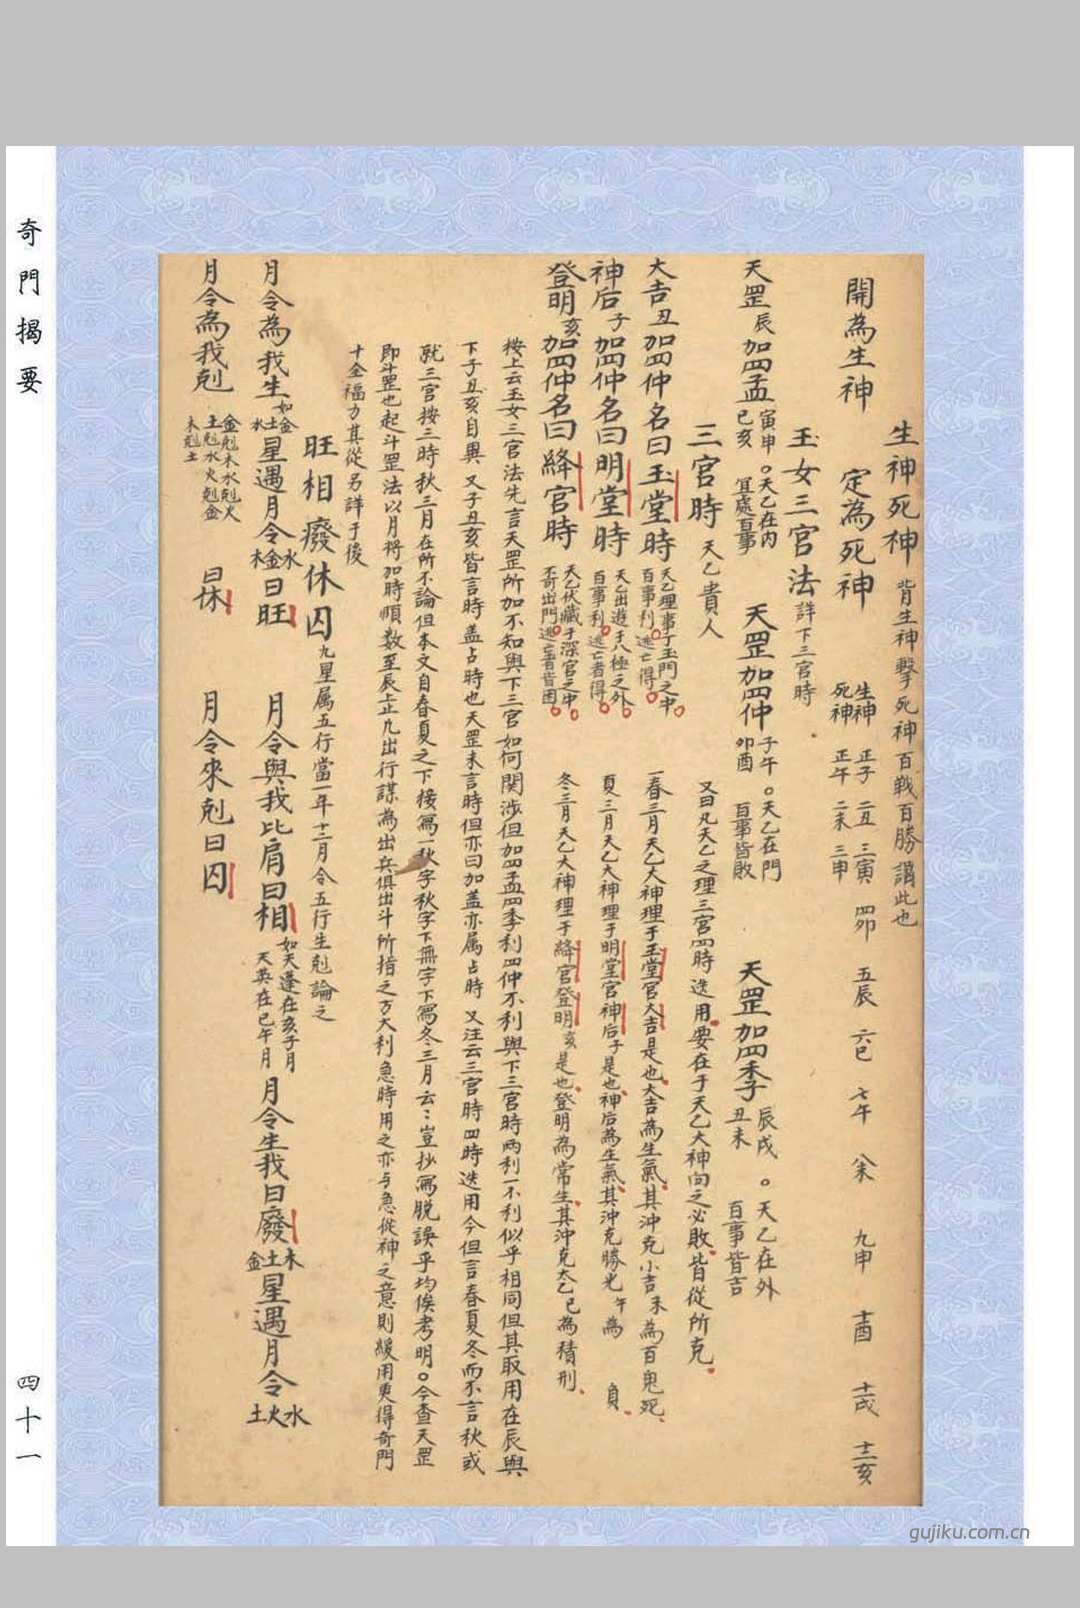 奇門揭要
生神死神 背生神擊死神百戰百勝謂此也
開為生神 定為死神 生神 正子 二丑 三寅 四卯 五辰 六巳 七午 八未 九申 十酉 十一戌 十二亥
死神 正午 二未 三申
玉女三宮法 詳下三宮時
天罡辰加四孟 寅申巳亥 。天乙在內宜處百事 天罡加四仲 子午卯酉 。天乙在門百事皆敗 天罡加四季 辰戌丑未 。天乙在外百事皆吉
三宮時 天乙貴人 又曰凡天乙之理三宮四時迭用要在于天乙大神向之必敗皆從所克
大吉丑加四仲名曰玉堂時 天乙理事丁玉門之中百事利逃亡得 一春三月天乙大神理于玉堂宮大吉是也大吉為生氣其沖克小吉未為百鬼死
神后子加四仲名曰明堂時 天乙出遊于八極之外百事利逃亡者得 夏三月天乙大神理于明堂宮神后子是也神后為生氣其沖克勝光午為 負
登明亥加四仲名曰絳宮時 天乙伏藏于深宮之中不可出門逃亡者皆困 冬三月天乙大神理于絳宮登明亥是也登明為常生其沖克太乙巳為積刑
按上云玉女三宮法先言天罡所加不知與下三宮如何関涉但加四孟四季利四仲不利與下三宮時兩利一不利似乎相同但其取用在辰與
下子丑亥自異 又子丑亥皆言時蓋占時也天罡未言時但亦曰加蓋亦属占時 又注云三宮時四時迭用今但言春夏冬而不言秋或
就三宮按三時秋三月在所不論但本文自春夏之下接寫一秋字秋字下無字下寫冬三月云云豈抄寫脫誤乎均俟考明。今查天罡
即斗罡也起斗罡法以月將加時順数至辰上止凡出行謀為出兵俱出斗所指之方大利急時用之亦与急從神之意則緩用更得奇門
十全福力其從另詳于後
旺相廢休囚 九星属五行當一年十二月令五行生剋論之
月令為我生 如金水土 星遇月令 水金木 曰旺 月令與我比肩曰相 如天蓬在亥子月天英在巳午月 月令生我曰廢 木土金 星遇月令 水火土
月令為我剋 金剋木水剋火土剋水火剋金木剋土 曰休 月令來剋曰囚
四十一
gujiku.com.cn